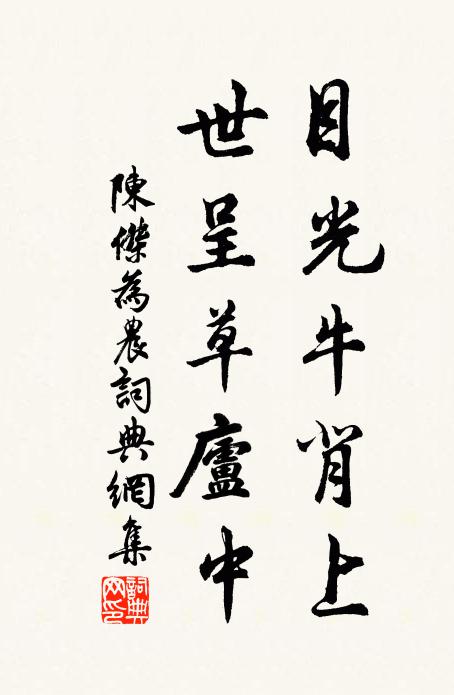 目光牛背上
世呈草廬中
陳傑為農詞典網集
詞典网印